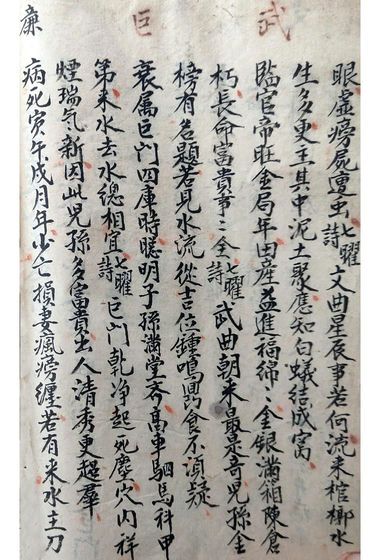 眼虛癆屍遭虫七曜詩文曲星辰事若何流来棺槨水
生多更主其中泥土聚應知白蟻結成窩
武
臨官帝旺金局年田産益進福綿〻金銀滿箱陳倉
朽長命富貴事〻全七曜詩武曲朝来最是奇児孫金
榜有名題若見水流從吉位鍾鳴鼎食不須疑
巨
衰属巨门四庫時聪明子孫滿堂齐高車駟馬科甲
第来水去水總相宜七曜詩巨门乾净起塵穴内祥
煙瑞氣新因此児孫多富貴出人清秀更超羣
廉
病死寅午戌月年少亡損妻瘋癆纏若有来水主刀